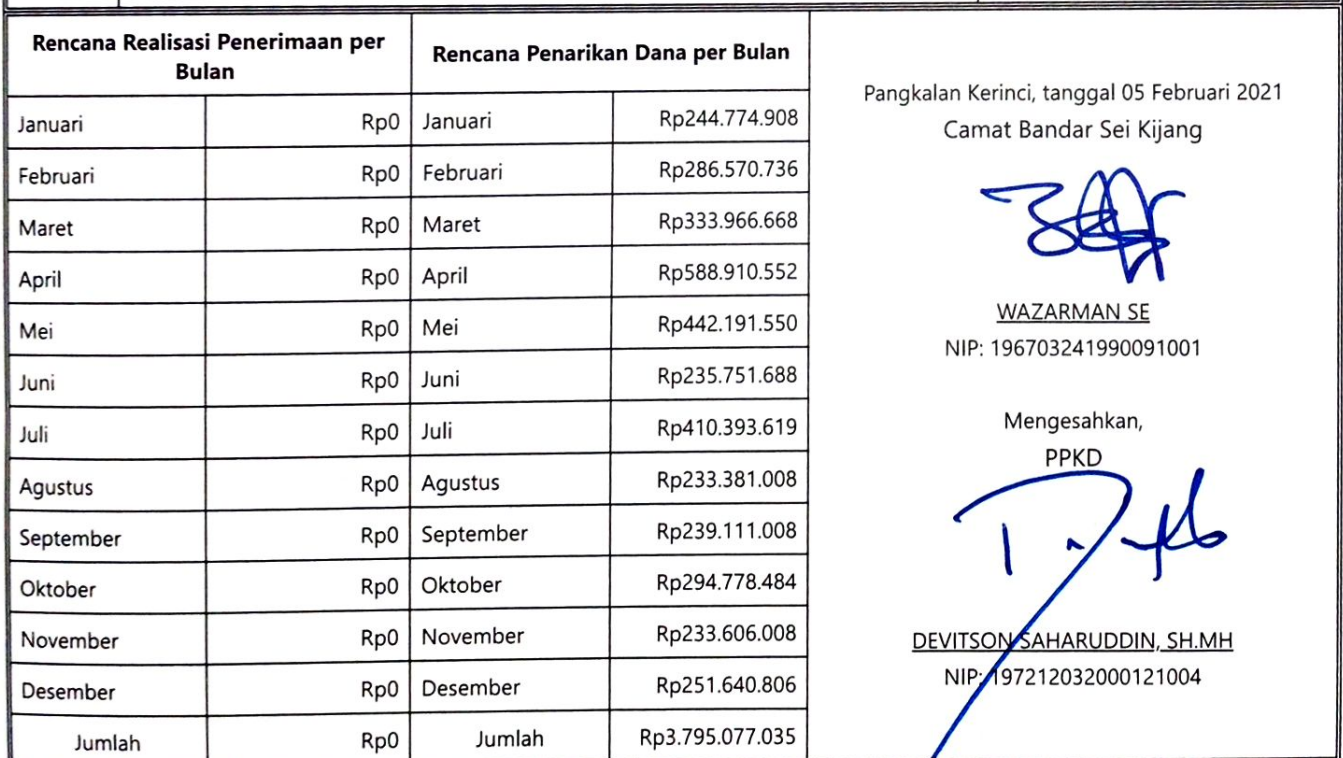 Rencana Realisasi Penerimaan per
Bulan
Rencana Penarikan Dana per Bulan
Januari Rp0 Januari Rp244.774.908
Februari Rp0 Februari Rp286.570.736
Maret Rp0 Maret Rp333.966.668
April Rp0 April Rp588.910.552
Mei Rp0 Mei Rp442.191.550
Juni Rp0 Juni Rp235.751.688
Juli Rp0 Juli Rp410.393.619
Agustus Rp0 Agustus Rp233.381.008
September Rp0 September Rp239.111.008
Oktober Rp0 Oktober Rp294.778.484
November Rp0 November Rp233.606.008
Desember Rp0 Desember Rp251.640.806
Jumlah Rp0 Jumlah Rp3.795.077.035
Pangkalan Kerinci, tanggal 05 Februari 2021
Camat Bandar Sei Kijang
WAZARMAN SE
NIP: 196703241990091001
Mengesahkan,
PPKD
DEVITSON SAHARUDDIN, SH.MH
NIP: 197212032000121004